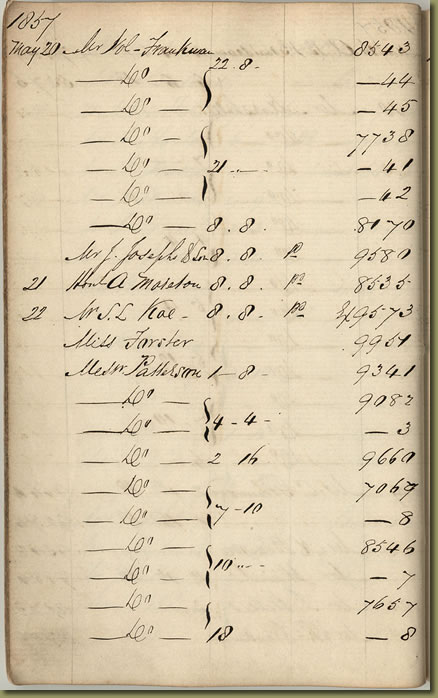 1857
May 20 Mr Vol- Frankum 8543
— Do — 22.8- — 44
— Do — — 45
— Do — 7738
— Do — 21 .. — 41
— Do — — 42
— Do — 8.8. 8170
Mr J. Joseph & Son 8.8. pd 9580
21 Honl A Moreton 8.8. pd 8535
22 Mr S.L Koe - 8.8. pd 9573
Miss Forster 9951
Messrs Patterson 1-8- 9341
— Do — 9082
— Do — 4-4- — 3
— Do — 2 16 9660
— Do — 7069
— Do — 7-10 — 8
— Do — 8546
— Do — 10 .. — 7
— Do — 7657
— Do — 18 — 8